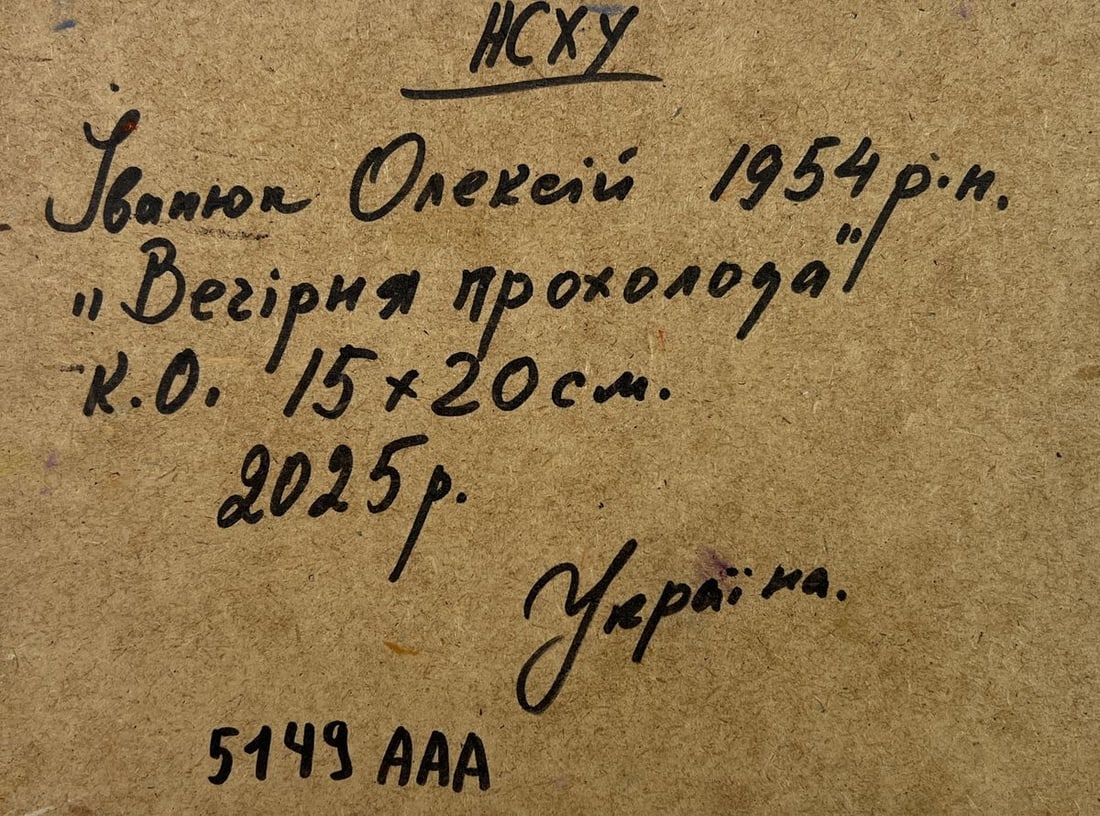 НСХУ
Іванюк Олексій 1954 р.н.
"Вечірня прохолода"
к.О. 15 x 20 см.
2025 р.
Україна.
5149 AAA